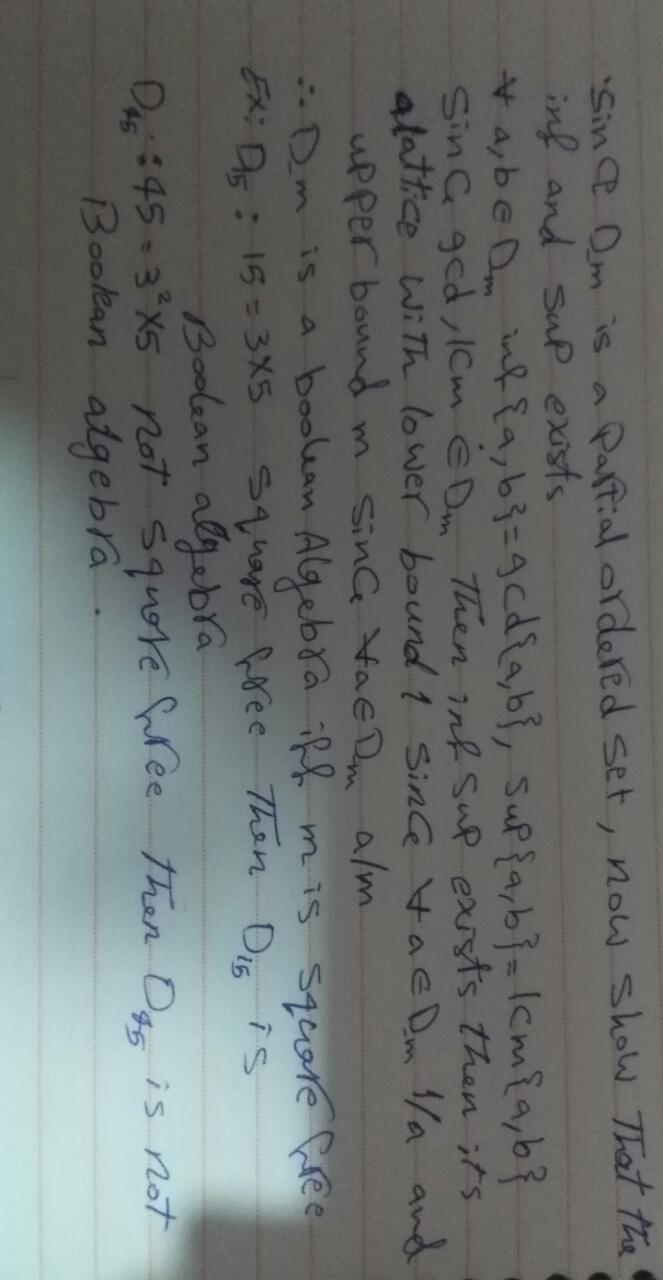 Since Dm is a Partial ordered set, now show That the
inf and sup exists
∀ a,b ∈ Dm inf {a,b}=gcd{a,b}, sup{a,b}=lcm{a,b}
Since gcd, lcm ∈ Dm Then inf sup exists then its
alattice with lower bound 1 since ∀a∈Dm 1/a and
upper bound m since ∀a∈Dm a/m
∴ Dm is a boolean Algebra iff m is square free
EX: D15 : 15 = 3×5 square free Then D15 is
Boolean algebra
D45 : 45 = 3²×5 not square free then D45 is not
Boolean algebra .